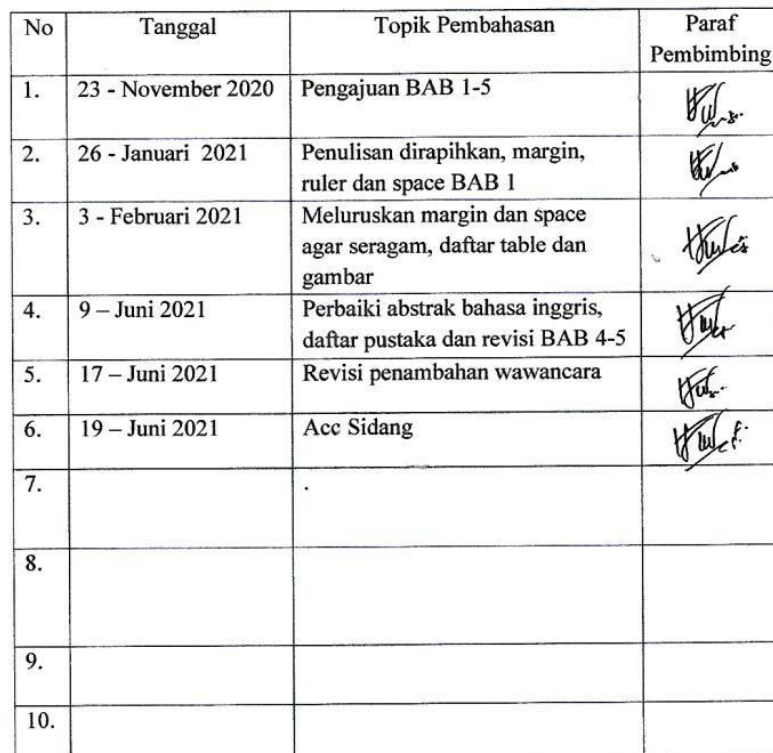 No Tanggal Topik Pembahasan Paraf
Pembimbing
1. 23 - November 2020 Pengajuan BAB 1-5
2. 26 - Januari 2021 Penulisan dirapihkan, margin,
ruler dan space BAB 1
3. 3 - Februari 2021 Meluruskan margin dan space
agar seragam, daftar table dan
gambar
4. 9 – Juni 2021 Perbaiki abstrak bahasa inggris,
daftar pustaka dan revisi BAB 4-5
5. 17 – Juni 2021 Revisi penambahan wawancara
6. 19 – Juni 2021 Acc Sidang
7.
8.
9.
10.